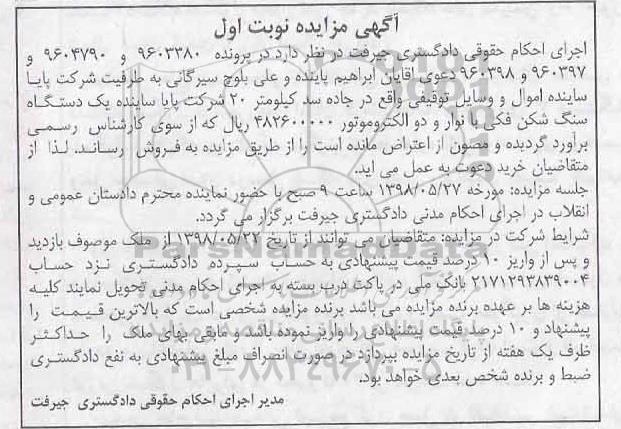 آگهی مزایده نوبت اول
اجرای احکام حقوقی دادگستری جیرفت در نظر دارد در پرونده ۹۶۰۳۳۸۰ و ۹۶۰۴۷۹۰ و
۹۶۰۳۹۷ و ۹۶۰۳۹۸ دعوی اقایان ابراهیم پاینده و علی بلوچ سیرگانی به طرفیت شرکت پایا
ساینده اموال و وسایل توقیفی واقع در جاده سد کیلومتر ۲۰ شرکت پایا ساینده یک دستگاه
سنگ شکن فکی با نوار و دو الکتروموتور ۴۸۲۶۰۰۰۰۰ ریال که از سوی کارشناس رسمی
براورد گردیده و مصون از اعتراض مانده است را از طریق مزایده به فروش رساند. لذا از
متقاضیان خرید دعوت به عمل می اید.
جلسه مزایده: مورخه ۱۳۹۸/۰۵/۲۷ ساعت ۹ صبح با حضور نماینده محترم دادستان عمومی و
انقلاب در اجرای احکام مدنی دادگستری جیرفت برگزار می گردد.
شرایط شرکت در مزایده: متقاضیان می توانند از تاریخ ۱۳۹۸/۰۵/۲۲ از ملک موصوف بازدید
و پس از واریز ۱۰ درصد قیمت پیشنهادی به حساب سپرده دادگستری نزد حساب
۲۱۷۱۲۹۳۸۳۹۰۰۴ بانک ملی در پاکت درب بسته به اجرای احکام مدنی تحویل نمایند کلیه
هزینه ها بر عهده برنده مزایده می باشد برنده مزایده شخصی است که بالاترین قیمت را
پیشنهاد و ۱۰ درصد قیمت پیشنهادی را واریز نموده باشد و مابقی بهای ملک را حداکثر
ظرف یک هفته از تاریخ مزایده بپردازد در صورت انصراف مبلغ پیشنهادی به نفع دادگستری
ضبط و برنده شخص بعدی خواهد بود.
مدیر اجرای احکام حقوقی دادگستری جیرفت
ParsNamadData
۰۲۱-۸۸۳۴۹۶۷۰-۵